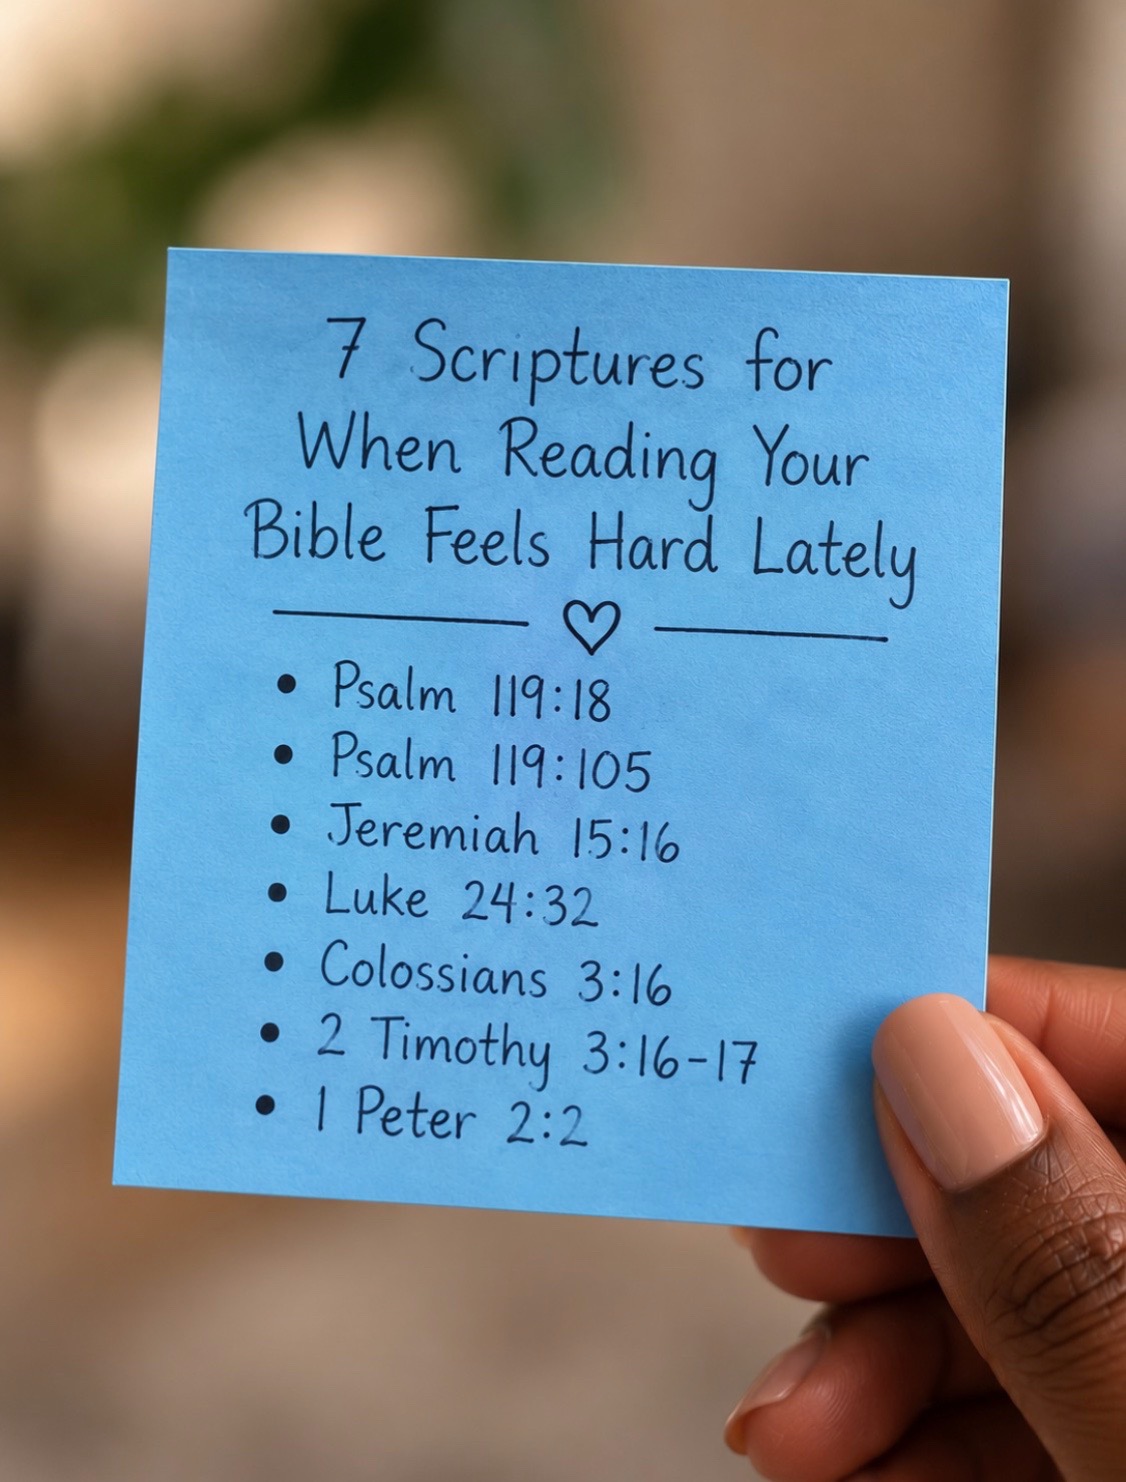 7 Scriptures for
When Reading Your
Bible Feels Hard Lately
• Psalm 119:18
• Psalm 119:105
• Jeremiah 15:16
• Luke 24:32
• Colossians 3:16
• 2 Timothy 3:16-17
• 1 Peter 2:2